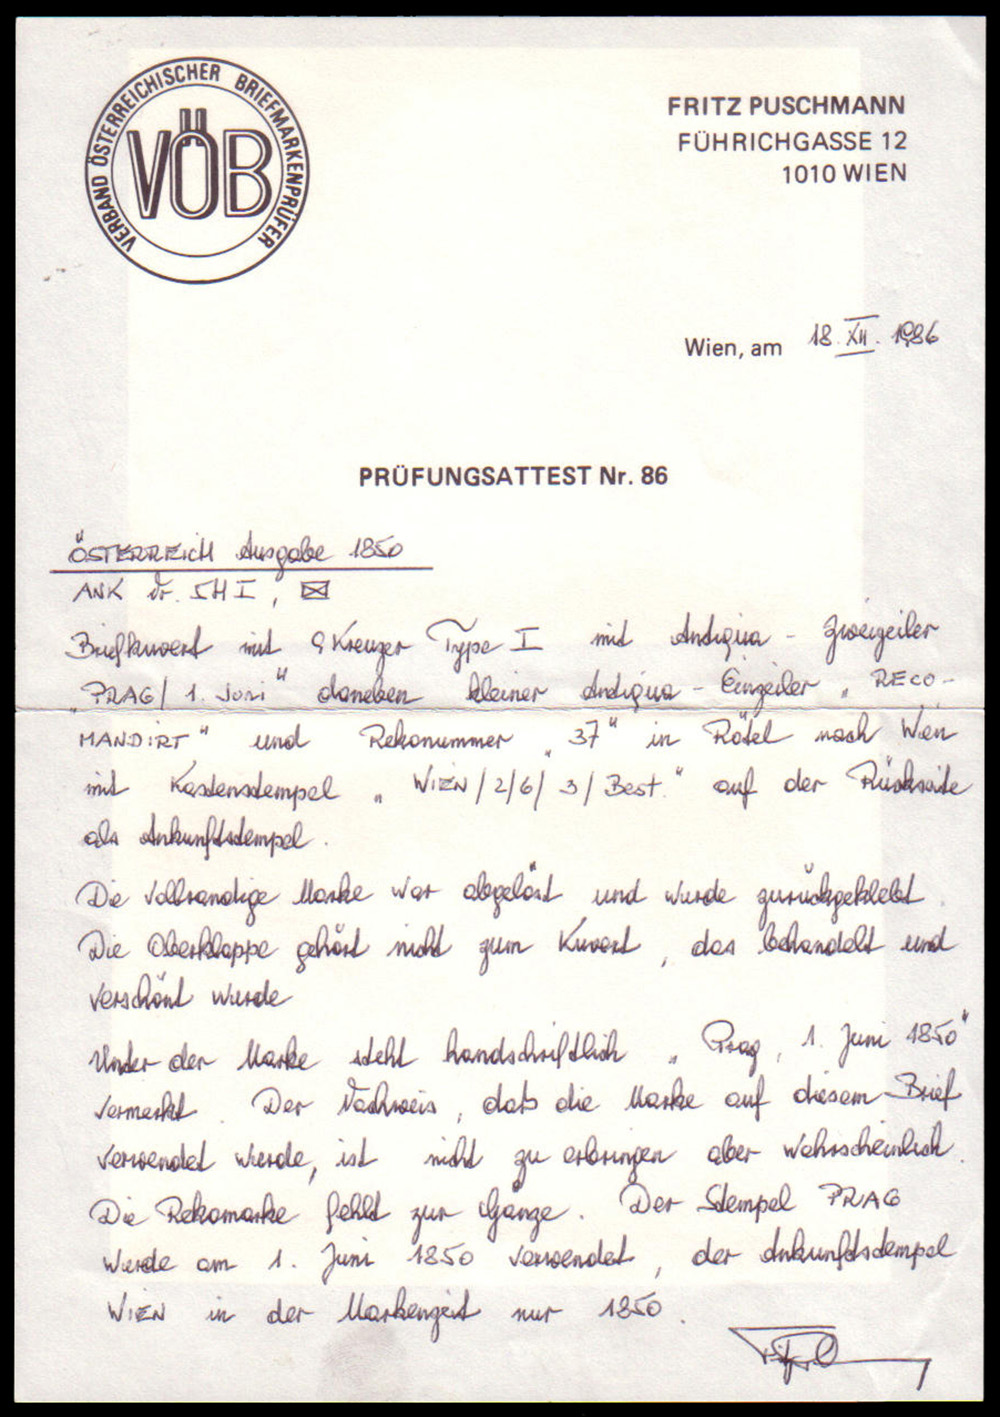 VERBAND ÖSTERREICHISCHER BRIEFMARKENPRÜFER
VÖB
FRITZ PUSCHMANN
FÜHRICHGASSE 12
1010 WIEN
Wien, am 18. XII. 1986
PRÜFUNGSATTEST Nr. 86
ÖSTERREICH Ausgabe 1850
ANK Nr. 5H I,
Briefkuvert mit 9 Kreuzer Type I mit Antiqua - Zweizeiler
„PRAG / 1. Juni" daneben kleiner Antiqua - Einzeiler „RECO-
MANDIRT" und Rekonummer „37" in Rötel nach Wien
mit Kastenstempel „WIEN / 2/6 / 3 / Best." auf der Rückseite
als Ankunftstempel.
Die vollrandige Marke war abgelöst und wurde zurückgeklebt.
Die Oberklappe gehört nicht zum Kuvert, das behandelt und
verschönt wurde
Unter der Marke steht handschriftlich „Prag, 1. Juni 1850"
vermerkt. Der Nachweis, daß die Marke auf diesem Brief
verwendet wurde, ist nicht zu erbringen aber wahrscheinlich.
Die Rekomarke fehlt zur Gänze. Der Stempel PRAG
wurde am 1. Juni 1850 verwendet, der Ankunftstempel
WIEN in der Markenzeit nur 1850.